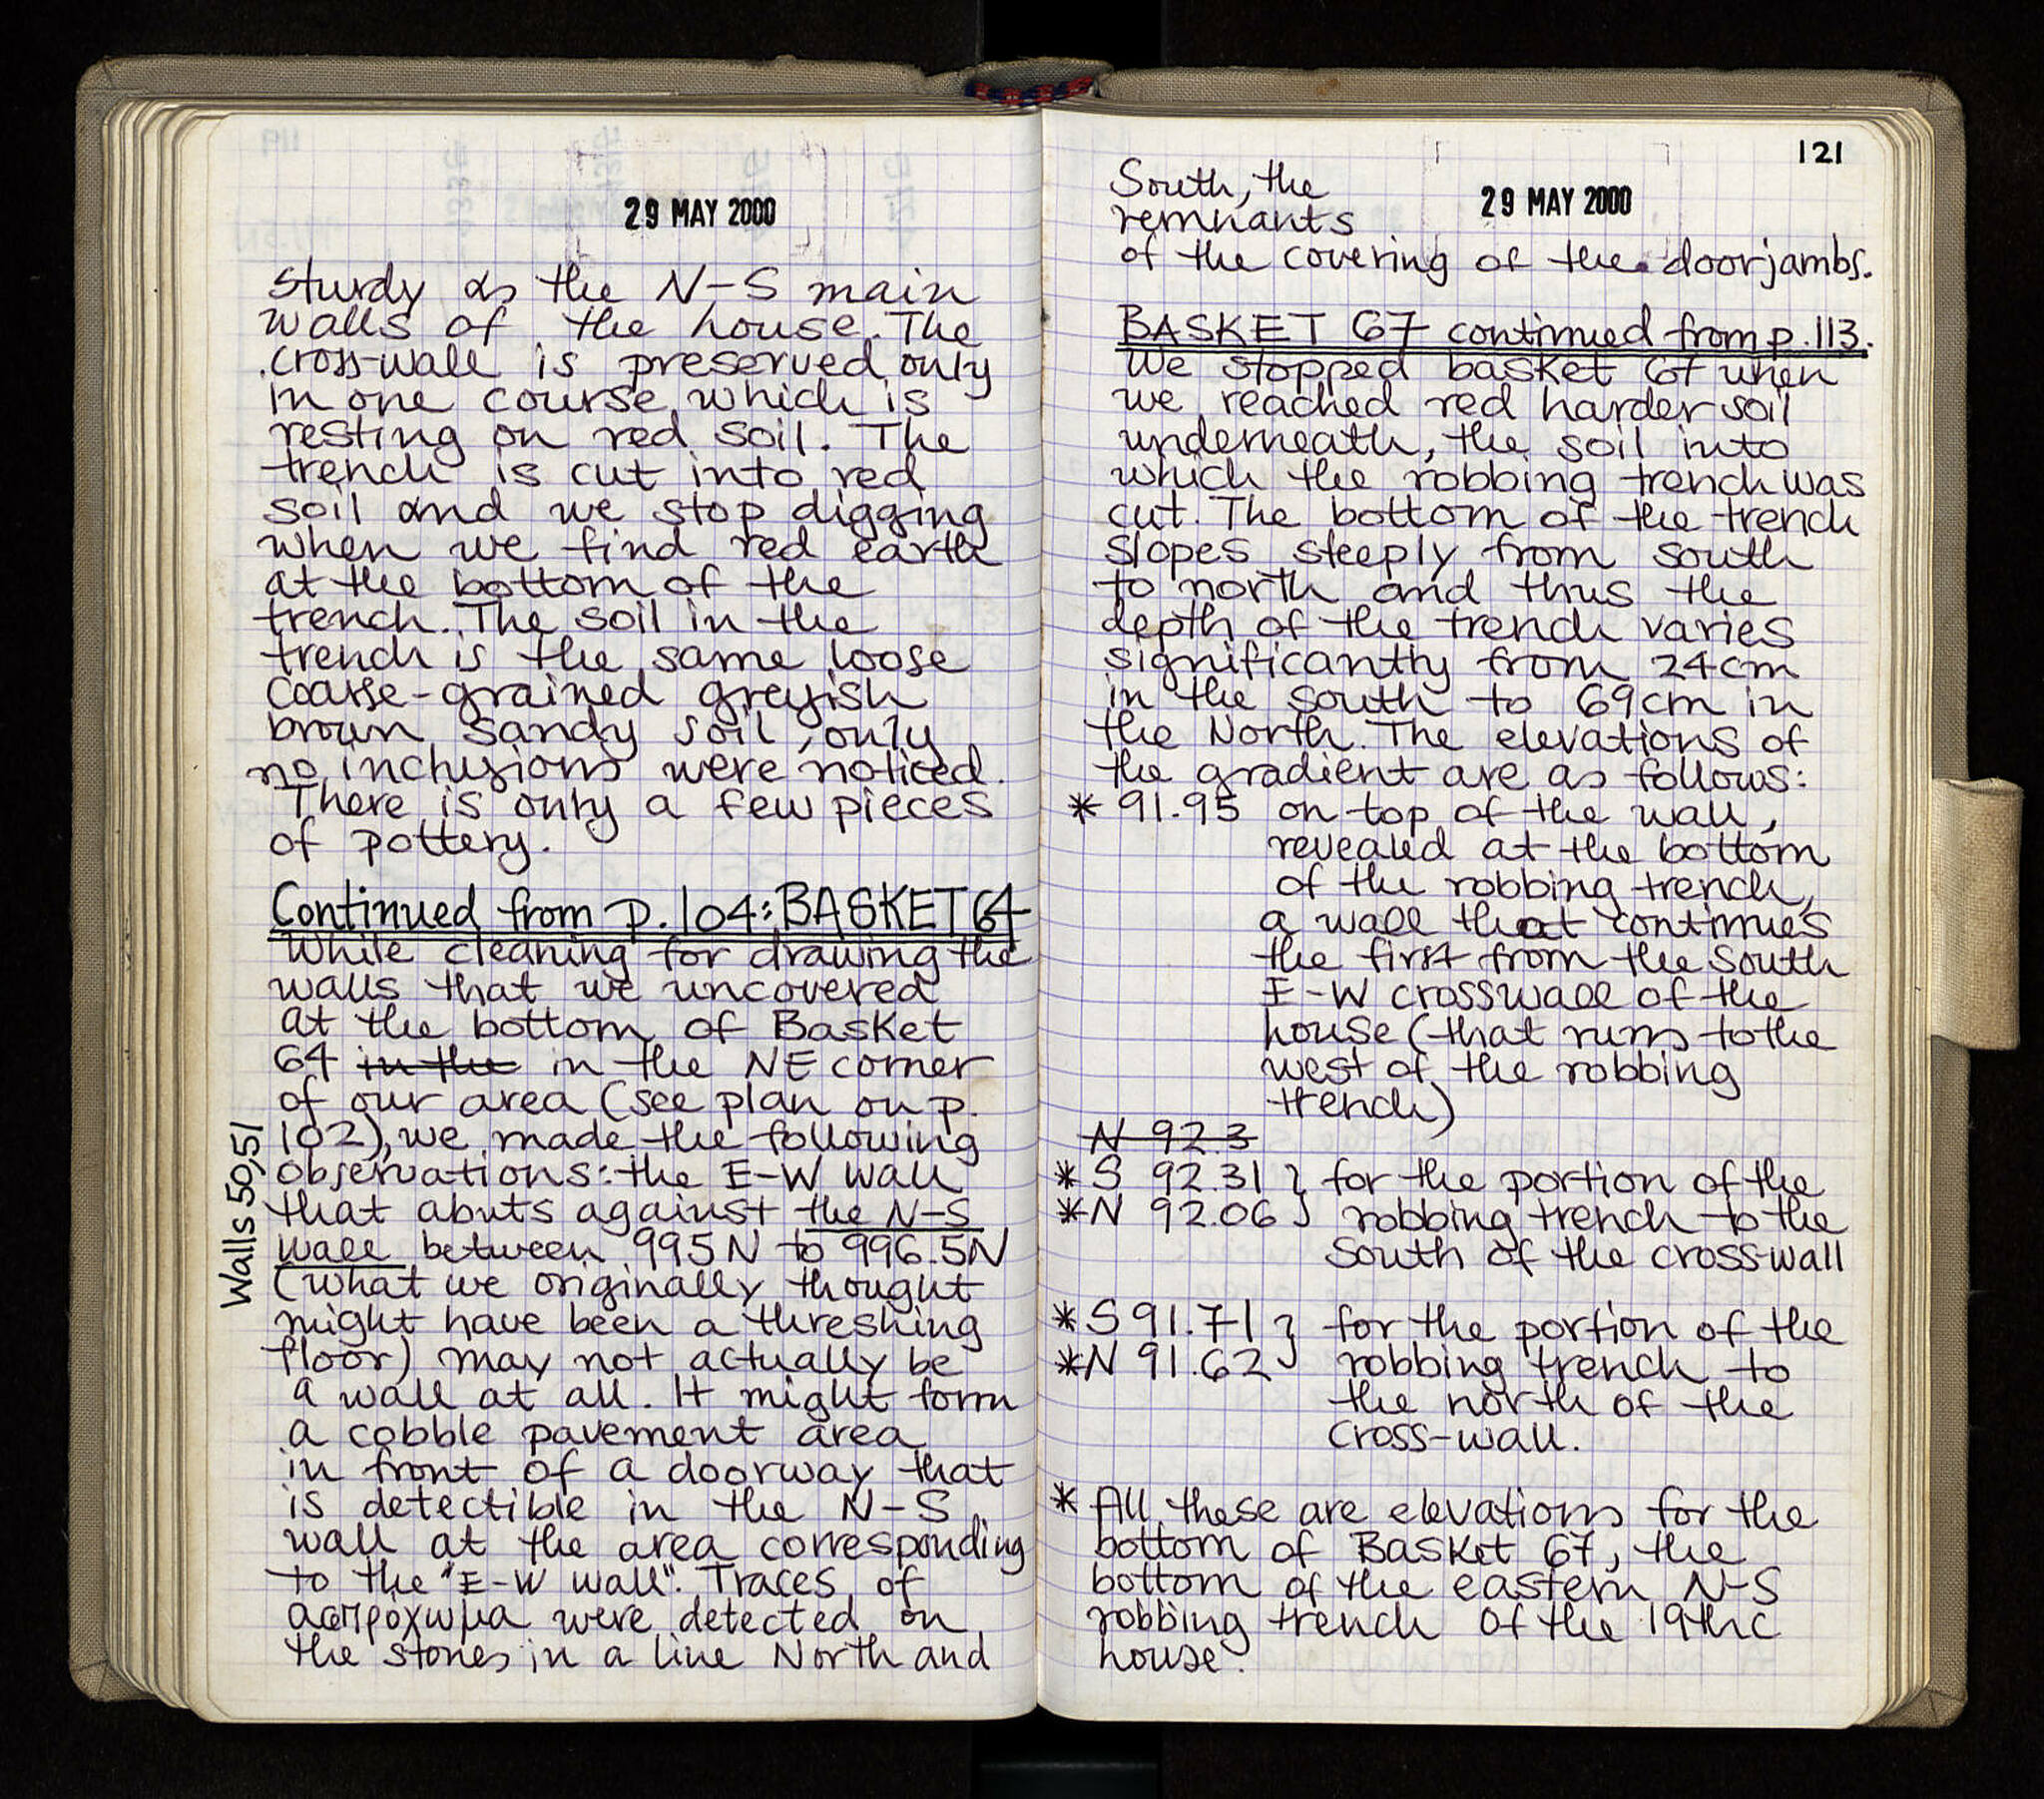 29 MAY 2000
sturdy as the N-S main
walls of the house. The
cross-wall is preserved only
in one course, which is
resting on red soil. The
trench is cut into red
soil and we stop digging
when we find red earth
at the bottom of the
trench. The soil in the
trench is the same loose
coarse-grained greyish
brown sandy soil, only
no inclusions were noticed.
There is only a few pieces
of pottery.
Continued from p. 104: BASKET 64
While cleaning for drawing the
walls that we uncovered
at the bottom of Basket
64 in the in the NE corner
of our area (see plan on p.
102), we made the following
observations: the E-W wall
that abuts against the N-S
wall between 995N to 996.5N
(what we originally thought
might have been a threshing
floor) may not actually be
a wall at all. It might form
a cobble pavement area
in front of a doorway that
is detectible in the N-S
wall at the area corresponding
to the "E-W wall". Traces of
ασπρόχωμα were detected on
the stones in a line North and
Walls 50,51
121
29 MAY 2000
South, the
remnants
of the covering of the doorjambs.
BASKET 67 continued from p. 113.
We stopped basket 67 when
we reached red harder soil
underneath, the soil into
which the robbing trench was
cut. The bottom of the trench
slopes steeply from south
to north and thus the
depth of the trench varies
significantly from 24cm
in the south to 69cm in
the North. The elevations of
the gradient are as follows:
* 91.95 on top of the wall,
revealed at the bottom
of the robbing trench,
a wall that continues
the first from the South
E-W crosswall of the
house (that runs to the
west of the robbing
trench)
N 92.3
* S 92.31 } for the portion of the
* N 92.06 } robbing trench to the
South of the cross-wall
* S 91.71 } for the portion of the
* N 91.62 } robbing trench to
the north of the
cross-wall.
* All these are elevations for the
bottom of Basket 67, the
bottom of the eastern N-S
robbing trench of the 19thc
house.